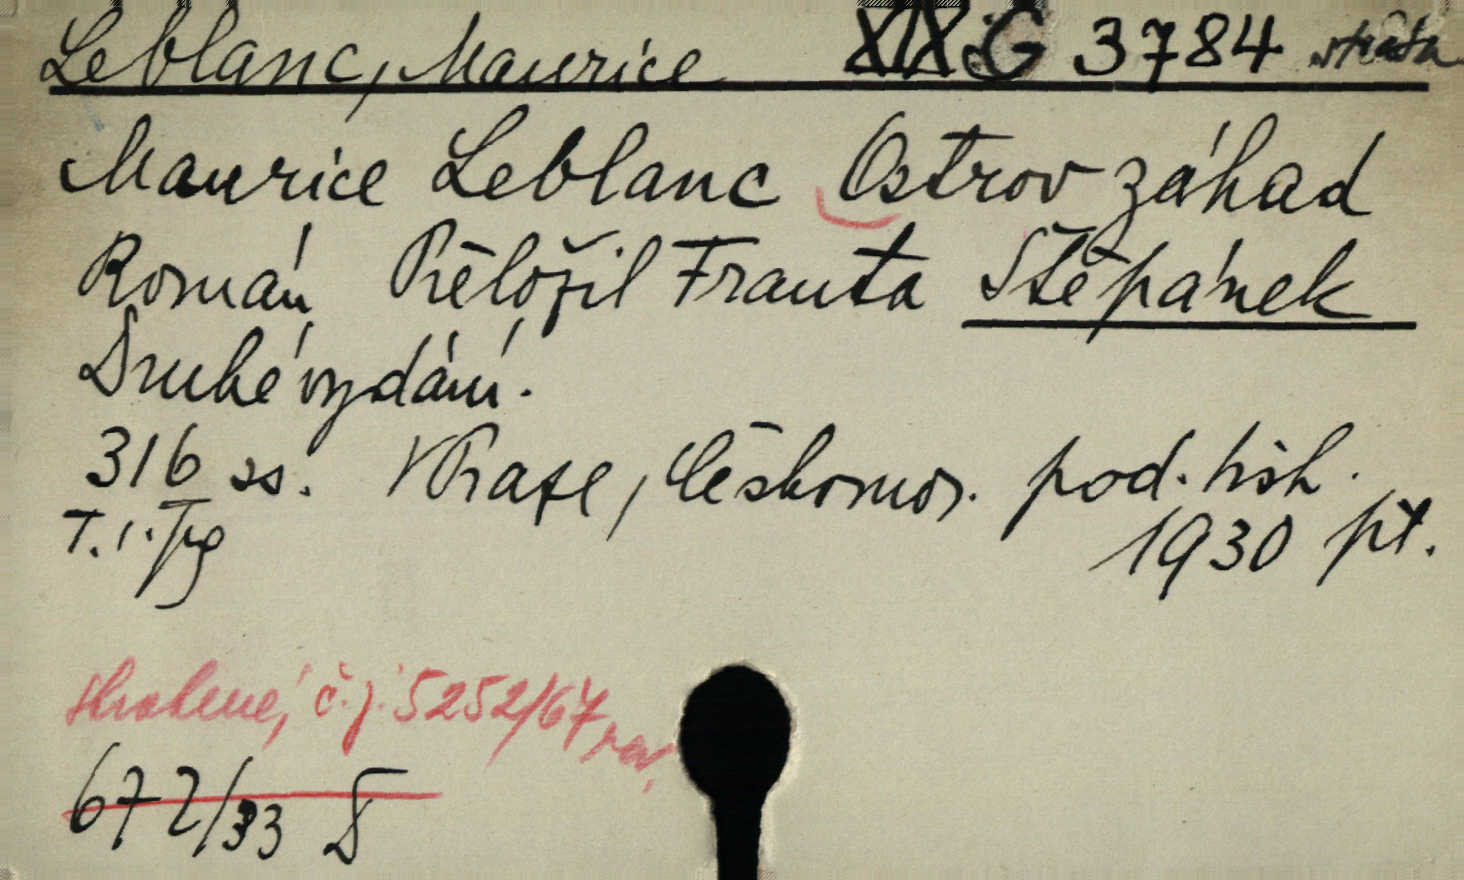 Leblanc, Maurice XIX G 3784 ztráta
Maurice Leblanc Ostrov záhad
Román Přeložil Franta Štěpánek
Druhé vydání.
316 ss. V Praze, Českomor. pod. tisk.
T. 1. 1930 př.
ztracené, č.j. 5252/67 rev.
672/33 D